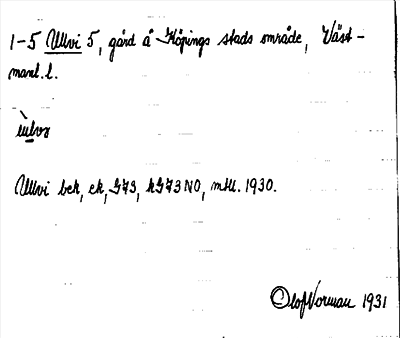 1-5 Ullvi 5, gård å Köpings stads område, Väst-
manl. l.
Ullvi bek, ek, G43, hG43 NO, mtl. 1930.
Olof Norman 1931